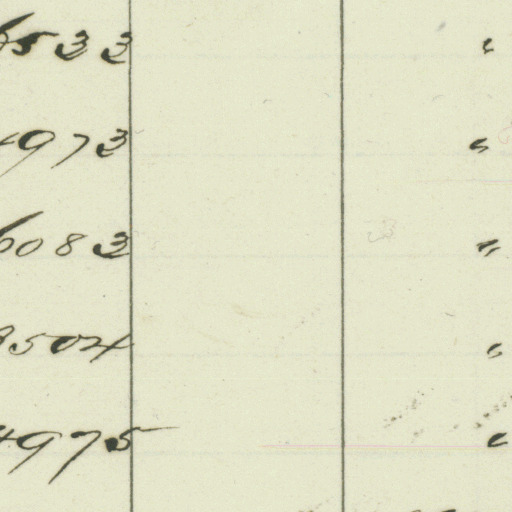 6533 "
4973 "
6083 "
8504 "
4975 "